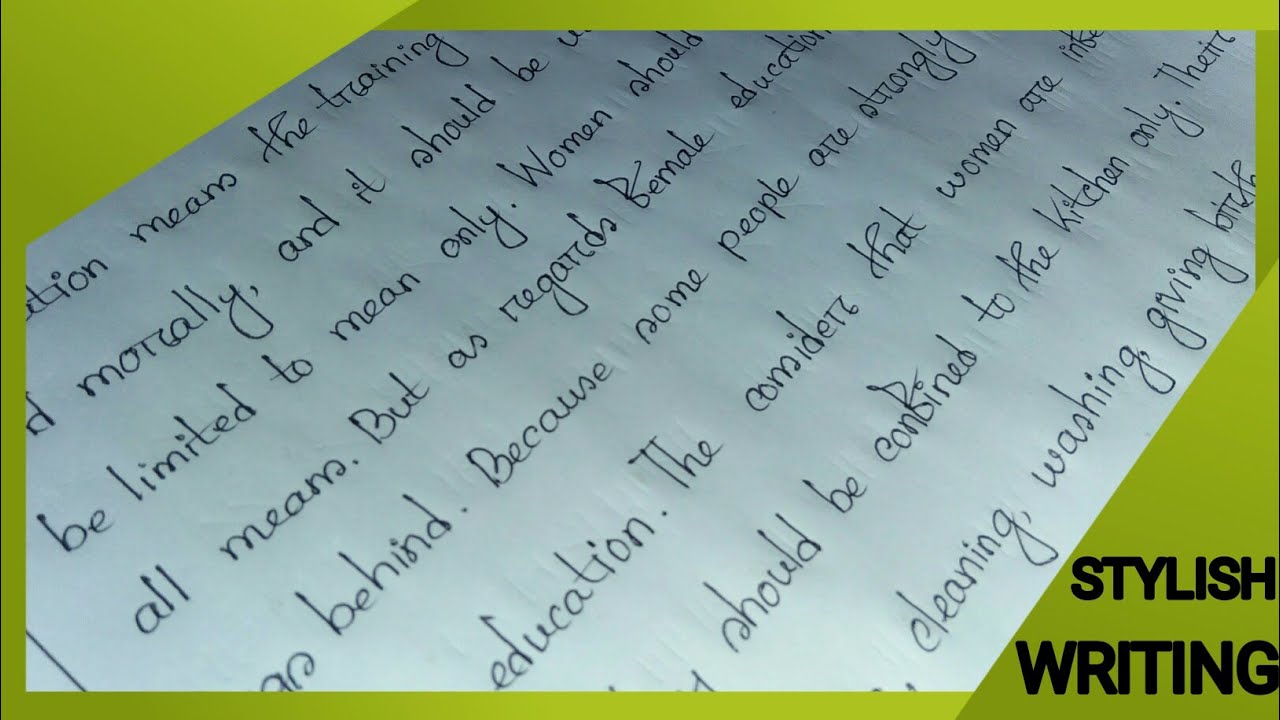 means the training
morally, and it should be
be limited to mean only. Women should
all means. But as regards Female education
behind. Because some people are strongly
education. The consider that women are
should be confined to the kitchen only. Their
cleaning, washing, giving birth
STYLISH
WRITING